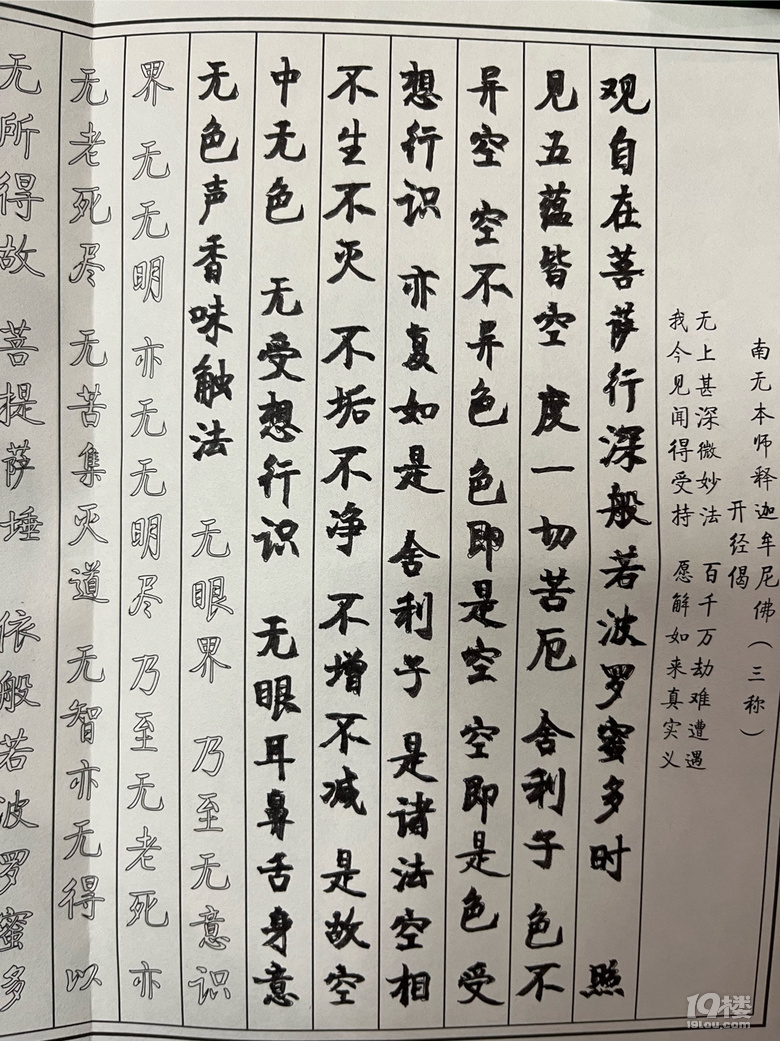 南无本师释迦牟尼佛（三称）
开经偈
无上甚深微妙法 百千万劫难遭遇
我今见闻得受持 愿解如来真实义
观自在菩萨行深般若波罗蜜多时 照
见五蕴皆空 度一切苦厄 舍利子 色不
异空 空不异色 色即是空 空即是色 受
想行识 亦复如是 舍利子 是诸法空相
不生不灭 不垢不净 不增不减 是故空
中无色 无受想行识 无眼耳鼻舌身意
无色声香味触法 无眼界 乃至无意识
界 无无明 亦无无明尽 乃至无老死 亦
无老死尽 无苦集灭道 无智亦无得 以
无所得故 菩提萨埵 依般若波罗蜜多
19楼
19lou.com